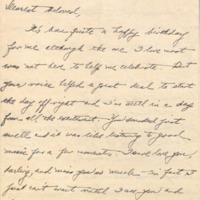 Dearest Beloved,
It's been quite a happy birthday
for me although the one I love most
was not here to help me celebrate. But
your voice helped a great deal to start
the day off right and I've been in a daze
from all the excitement. You sounded just
swell and it was like listening to good
music for a few moments. I do love you,
darling, and miss you so much. In fact I
just can't wait until I see you and